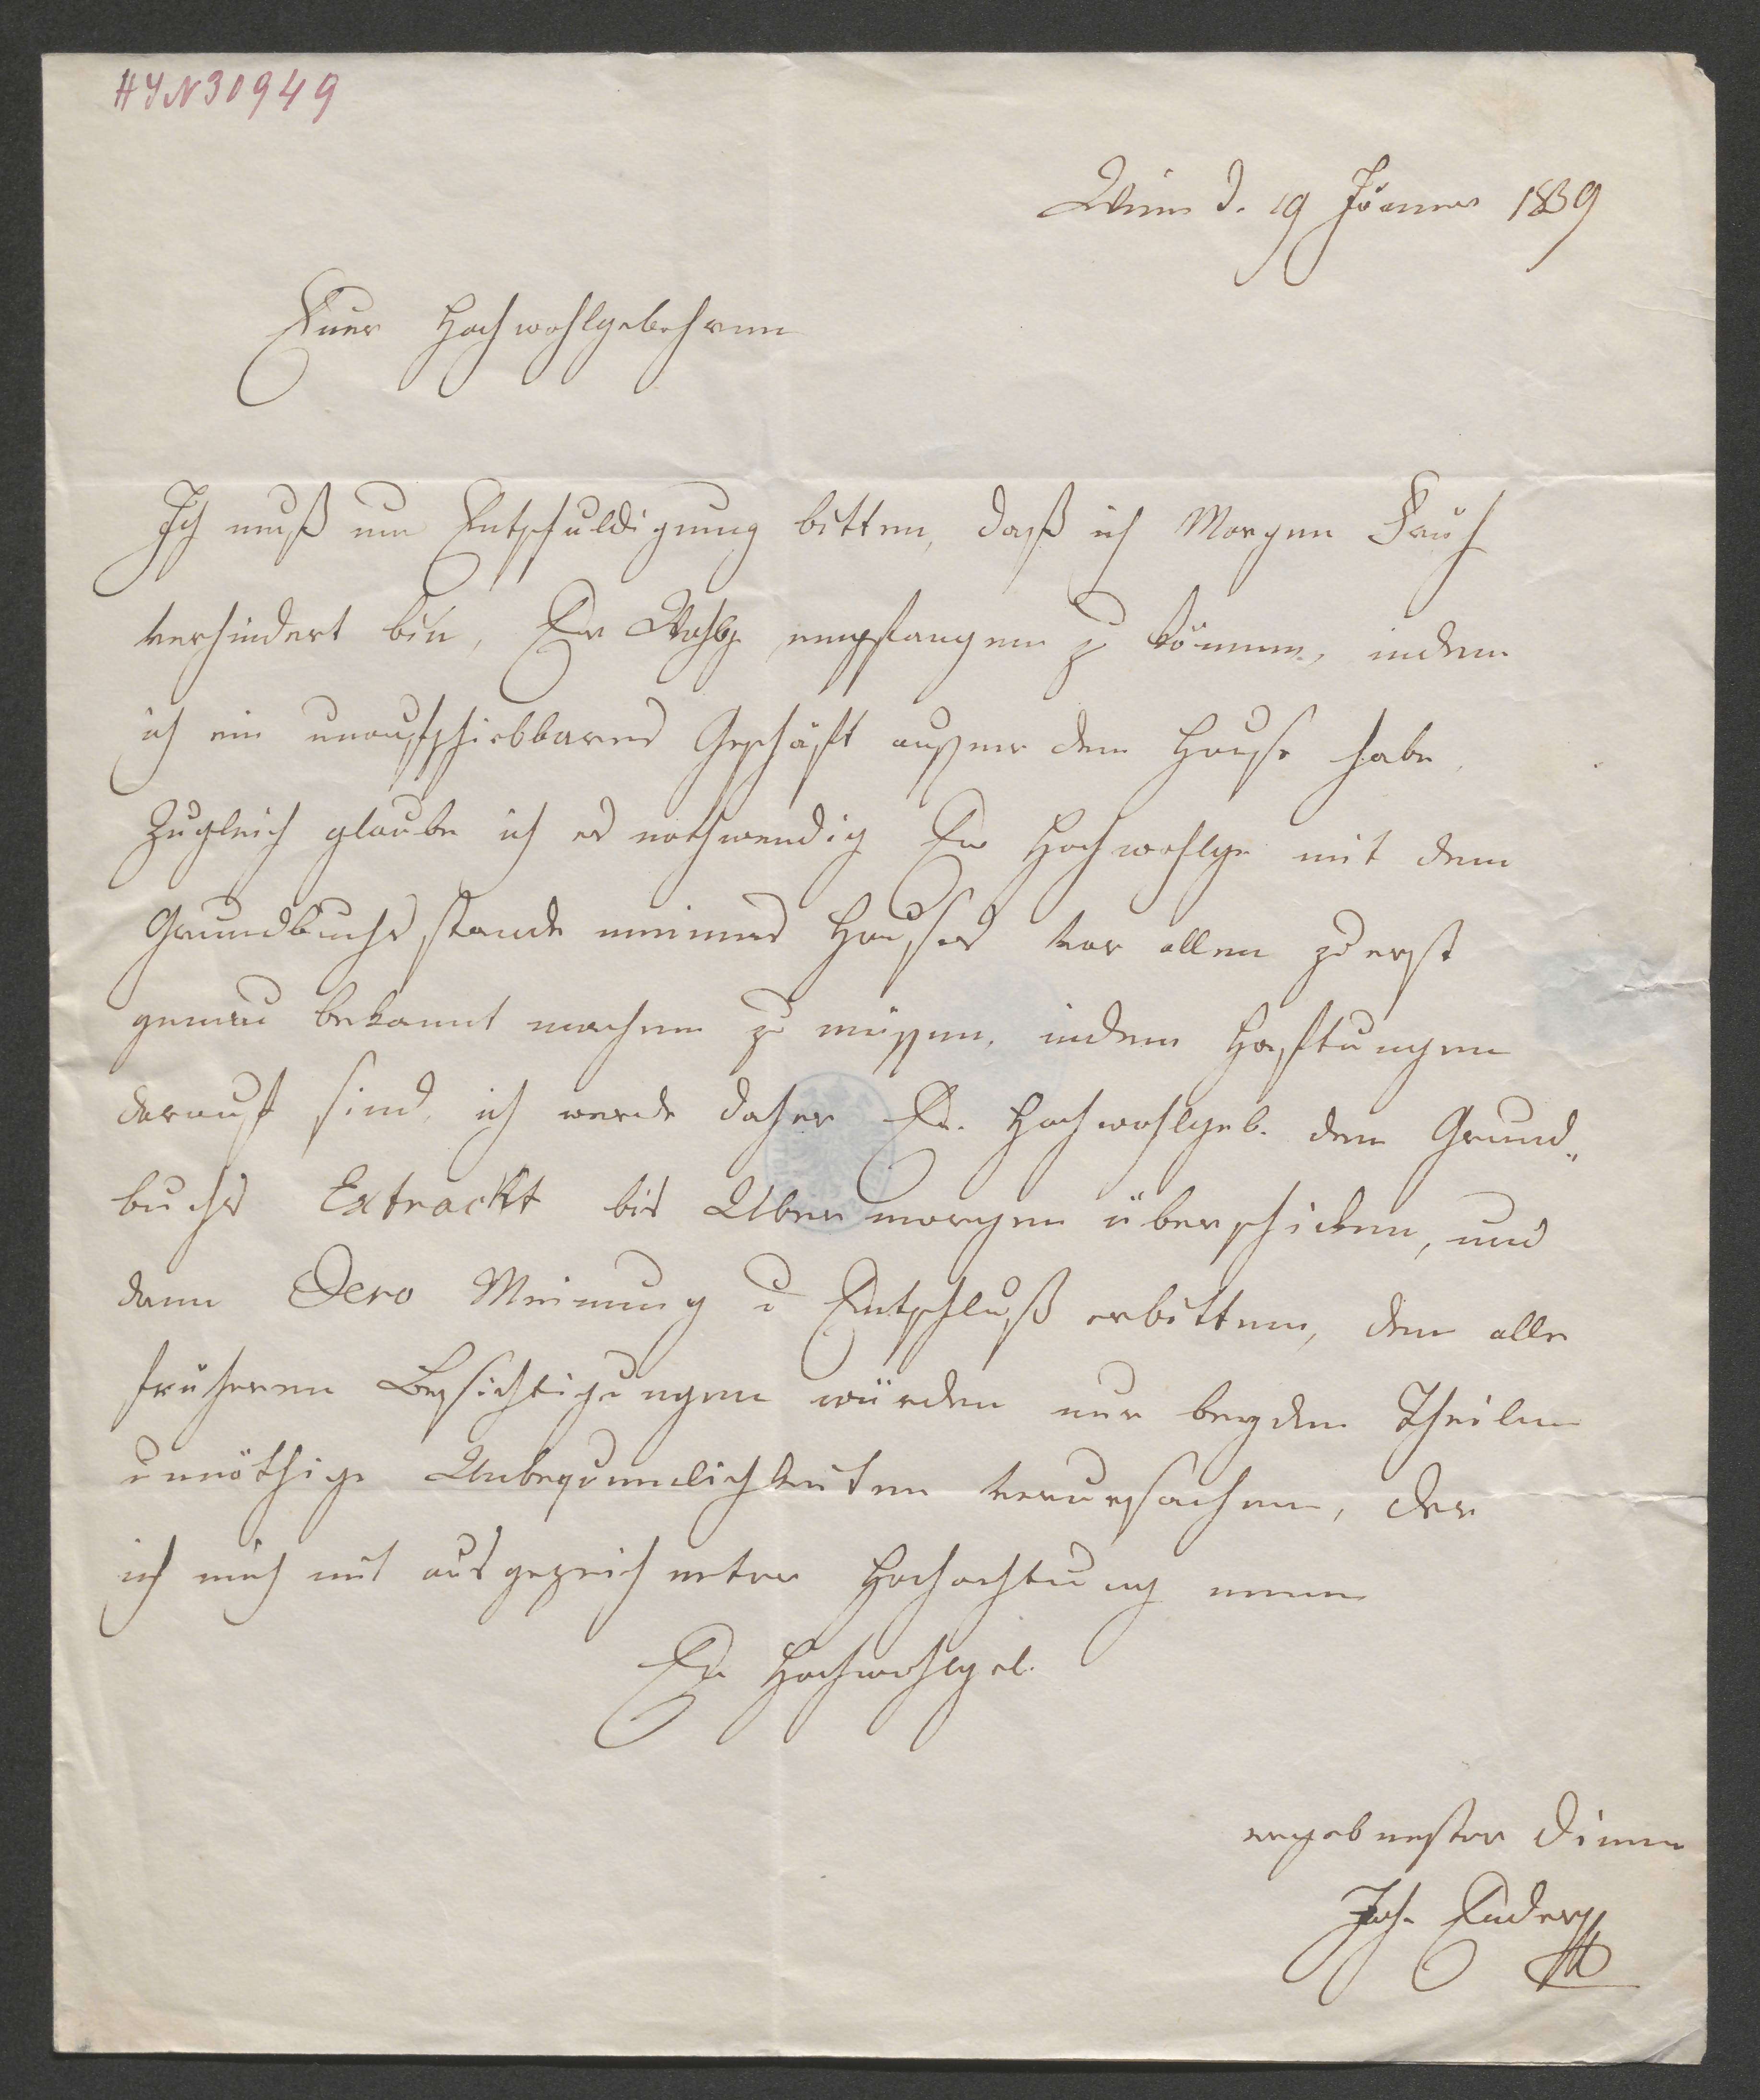 HIN 30949
Wien d. 19 Jänner 1839
Euer Hochwohlgebohren
Ich muß um Entschuldigung bitten, daß ich Morgen Früh
verhindert bin, Eu Wohlg empfangen zu können, indem
ich ein unaufschiebbares Geschäft ausser dem Hause habe.
Zugleich glaube ich es nothwendig Eu Hochwohlge mit dem
Grundbuchsstande meines Hauses vor allem zuerst
genau bekannt machen zu müssen, indem Haftungen
darauf sind, ich werde daher Eu. Hochwohlgeb. den Grund„
buchs Extrackt bis Uibermorgen überschicken, und
dann Dero Meinung u Entschluß erbitten, denn alle
früheren Besichtigungen würden nur beyden Theilen
unnöthige Unbequemlichkeiten verursachen, der
ich mich mit ausgezeichneter Hochachtung nenne
Eu Hochwohlgeb.
ergebnester Diener
Joh. Ender